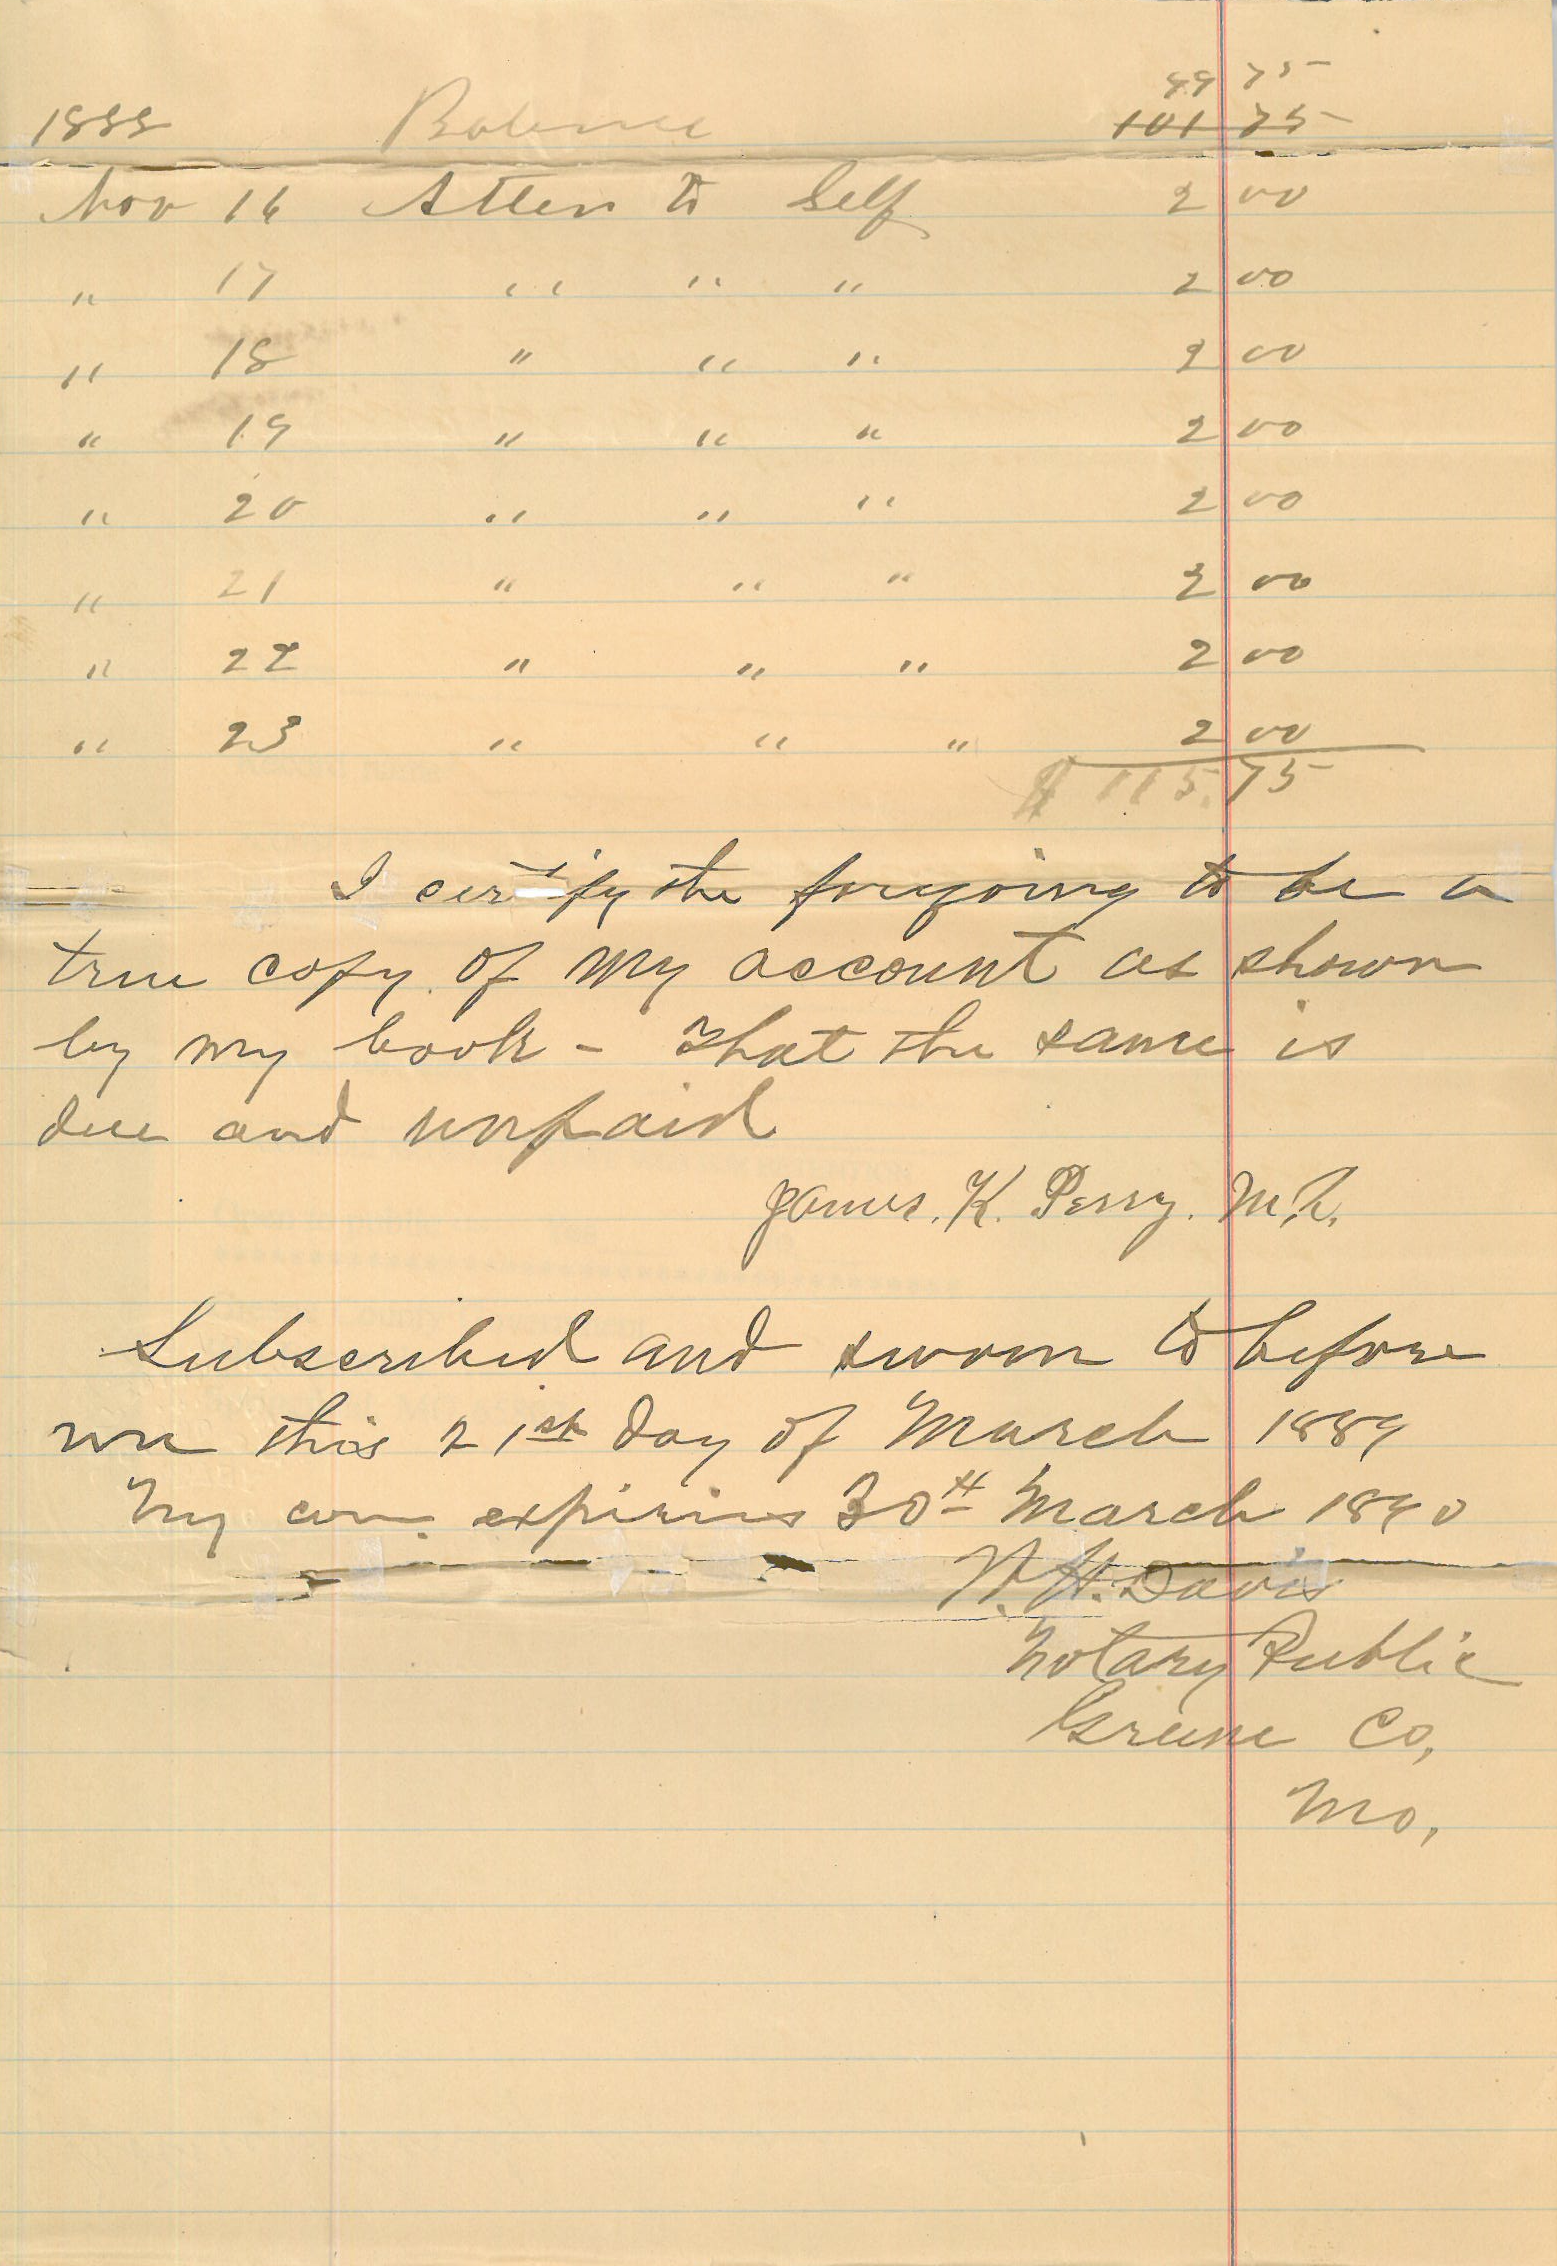 99 75
1888 Balance 101 75
Nov 16 Atten to Self 2 00
" 17 " " " 2 00
" 18 " " " 2 00
" 19 " " " 2 00
" 20 " " " 2 00
" 21 " " " 2 00
" 22 " " " 2 00
" 23 " " " 2 00
$ 115.75
I certify the foregoing to be a
true copy of my account as shown
by my book - That the same is
due and unpaid
James. K. Perry. M.D.
Subscribed and sworn to before
me this 21st day of March 1889
My com. expires 30th March 1890
W. H. Davis
Notary Public
Greene Co,
Mo,